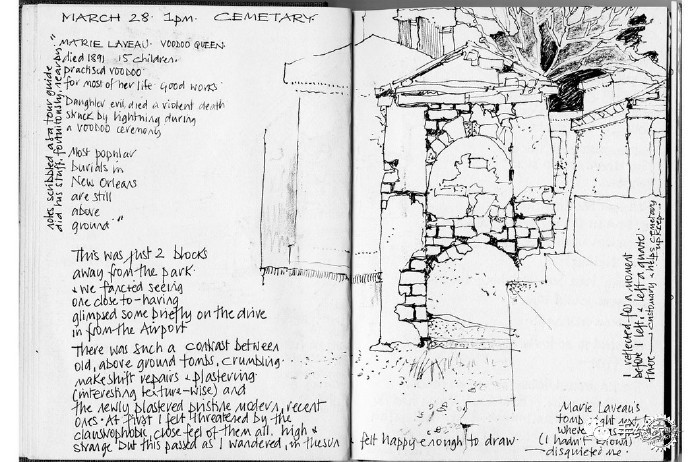 MARCH 28. 1pm. CEMETARY.
"MARIE LAVEAU. VOODOO QUEEN.
died 1891 15 children.
practised VOODOO
for most of her life. Good works.
Daughter evil, died a violent death
struck by lightning during
a VOODOO ceremony
Most popular
burials in
New Orleans
are still
above
ground."
notes scribbled as a tour guide
did his stuff, fortuitously, nearby
This was just 2 blocks
away from the park.
& we fancied seeing
one close to - having
glimpsed some briefly on the drive
in from the Airport
There was such a contrast between
old, above ground tombs, crumbling.
makeshift repairs & plastering
(interesting texture-wise) and
the newly plastered pristine modern, recent
ones. At first I felt threatened by the
claustrophobic, close feel of them all. high &
strange but this passed as I wandered, in the sun &
felt happy enough to draw.
I reflected for a moment
before I left & left a quarter
there → customary & helps cemetary
upkeep.
Marie Laveau's
tomb right next to
where
(I hadn't known)
disquieted me.